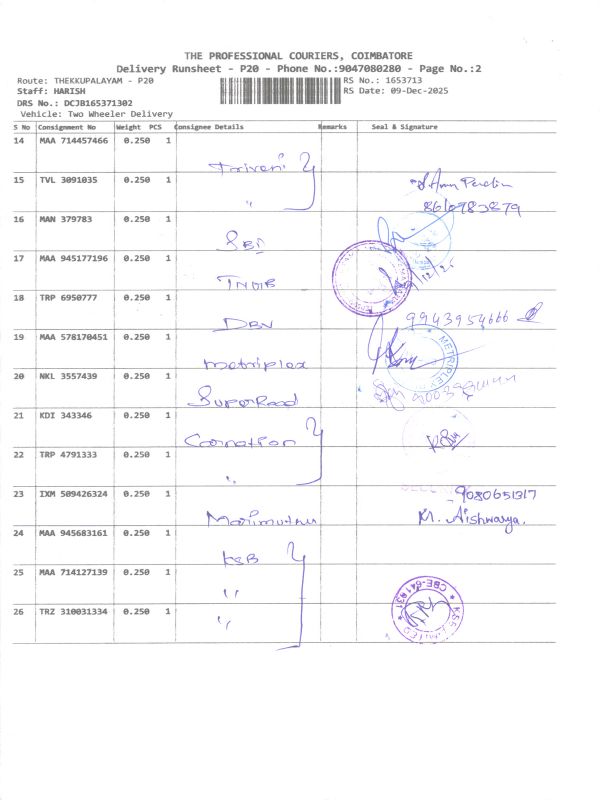 THE PROFESSIONAL COURIERS, COIMBATORE
Delivery Runsheet - P20 - Phone No.:9047080280 - Page No.:2
Route: THEKKUPALAYAM - P20 RS No.: 1653713
Staff: HARISH RS Date: 09-Dec-2025
DRS No.: DCJB165371302
Vehicle: Two Wheeler Delivery
S No Consignment No Weight PCS Consignee Details Remarks Seal & Signature
14 MAA 714457466 0.250 1
Triveni
15 TVL 3091035 0.250 1 "
8610983879
16 MAN 379783 0.250 1
SBI
17 MAA 945177196 0.250 1
TNMB
18 TRP 6950777 0.250 1
DBN 9943954666
19 MAA 578170451 0.250 1
metriplex METRIPLEX
20 NKL 3557439 0.250 1
21 KDI 343346 0.250 1
22 TRP 4791333 0.250 1
"
23 IXM 509426324 0.250 1 9080651317
Marimuthu M. Aishwarya.
24 MAA 945683161 0.250 1
KSB
25 MAA 714127139 0.250 1
"
26 TRZ 310031334 0.250 1
"
CBE-641 031
LIMITED